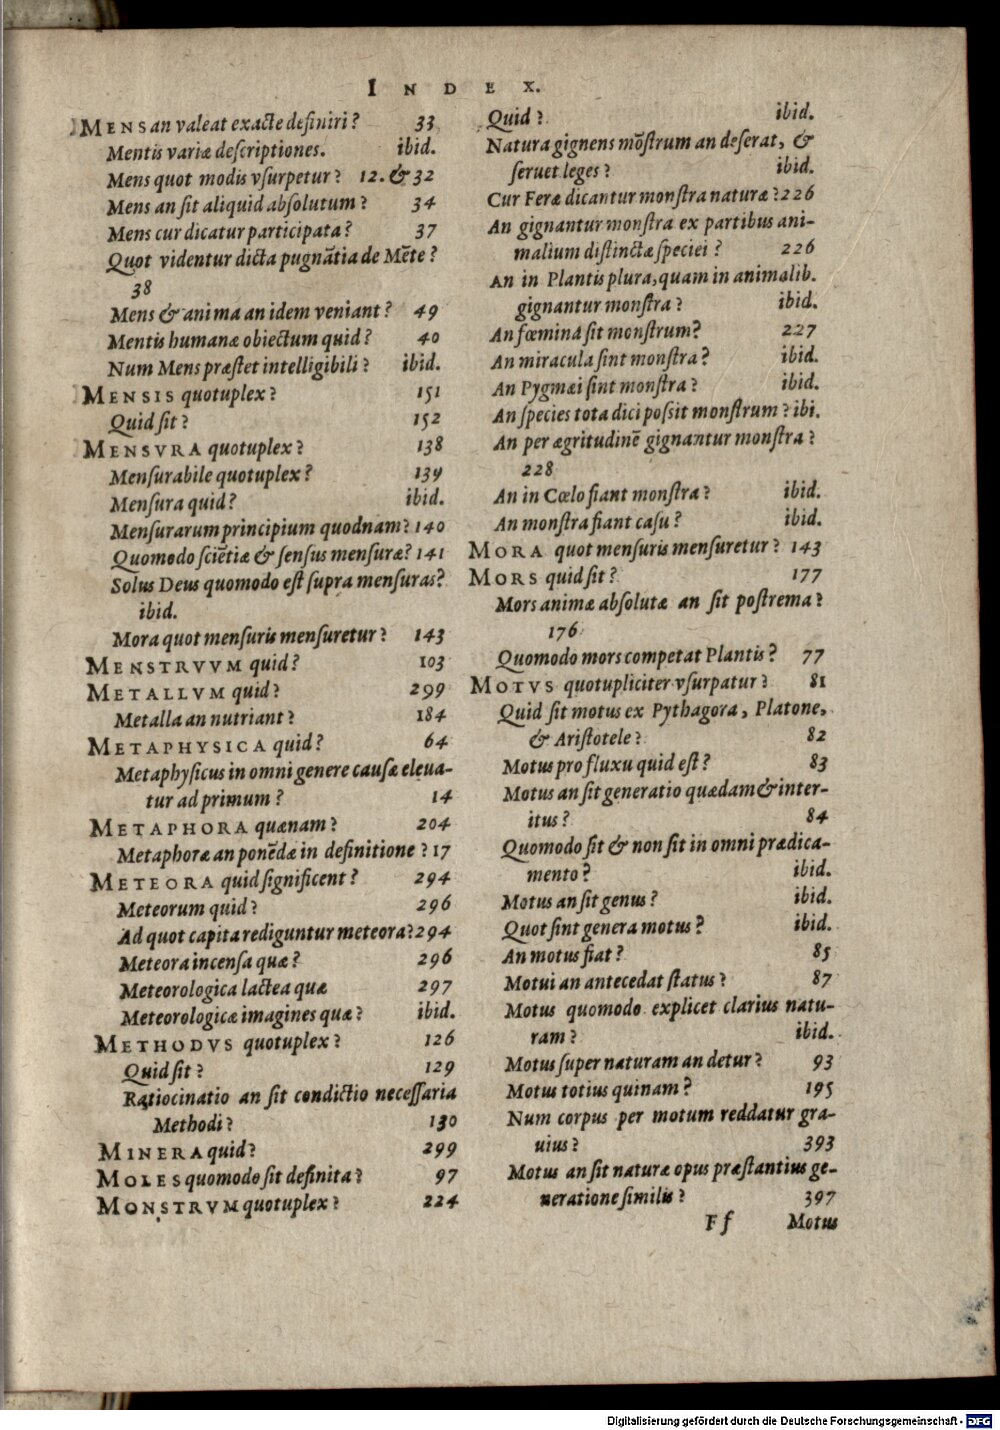 INDEX.
MENS an valeat exacte definiri? 33
Mentis variæ descriptiones. ibid.
Mens quot modis vsurpetur? 12. & 32
Mens an sit aliquid absolutum? 34
Mens cur dicatur participata? 37
Quot videntur dicta pugnātia de Mēte?
38
Mens & anima an idem veniant? 49
Mentis humanæ obiectum quid? 40
Num Mens præstet intelligibili? ibid.
MENSIS quotuplex? 151
Quid sit? 152
MENSVRA quotuplex? 138
Mensurabile quotuplex? 139
Mensura quid? ibid.
Mensurarum principium quodnam? 140
Quomodo sciētiæ & sensus mensuræ? 141
Solus Deus quomodo est supra mensuras?
ibid.
Mora quot mensuris mensuretur? 143
MENSTRVVM quid? 103
METALLVM quid? 299
Metalla an nutriant? 184
METAPHYSICA quid? 64
Metaphysicus in omni genere causæ eleua-
tur ad primum? 14
METAPHORA quænam? 204
Metaphoræ an ponēdæ in definitione? 17
METEORA quid significent? 294
Meteorum quid? 296
Ad quot capita rediguntur meteora? 294
Meteora incensa quæ? 296
Meteorologica lactea quæ 297
Meteorologicæ imagines quæ? ibid.
METHODVS quotuplex? 126
Quid sit? 129
Ratiocinatio an sit condictio necessaria
Methodi? 130
MINERA quid? 299
MOLES quomodo sit definita? 97
MONSTRVM quotuplex? 224
Quid? ibid.
Natura gignens mōstrum an deserat, &
seruet leges? ibid.
Cur Feræ dicantur monstra naturæ? 226
An gignantur monstra ex partibus ani-
malium distinctæ speciei? 226
An in Plantis plura, quam in animalib.
gignantur monstra? ibid.
An fœmina sit monstrum? 227
An miracula sint monstra? ibid.
An Pygmæi sint monstra? ibid.
An species tota dici possit monstrum? ibi.
An per ægritudinē gignantur monstra?
228
An in Cœlo fiant monstra? ibid.
An monstra fiant casu? ibid.
MORA quot mensuris mensuretur? 143
MORS quid sit? 177
Mors animæ absolutæ an sit postrema?
176
Quomodo mors competat Plantis? 77
MOTVS quotupliciter vsurpatur? 81
Quid sit motus ex Pythagora, Platone,
& Aristotele? 82
Motus pro fluxu quid est? 83
Motus an sit generatio quædam & inter-
itus? 84
Quomodo sit & non sit in omni prædica-
mento? ibid.
Motus an sit genus? ibid.
Quot sint genera motus? ibid.
An motus fiat? 85
Motui an antecedat status? 87
Motus quomodo explicet clarius natu-
ram? ibid.
Motus super naturam an detur? 93
Motus totius quinam? 195
Num corpus per motum reddatur gra-
uius? 393
Motus an sit naturæ opus præstantius ge-
neratione similis? 397
Ff Motus
Digitalisierung gefördert durch die Deutsche Forschungsgemeinschaft - DFG